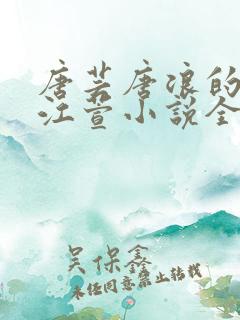 唐若唐浪的
江萱小说全
吴保鑫
未经同意禁止转载